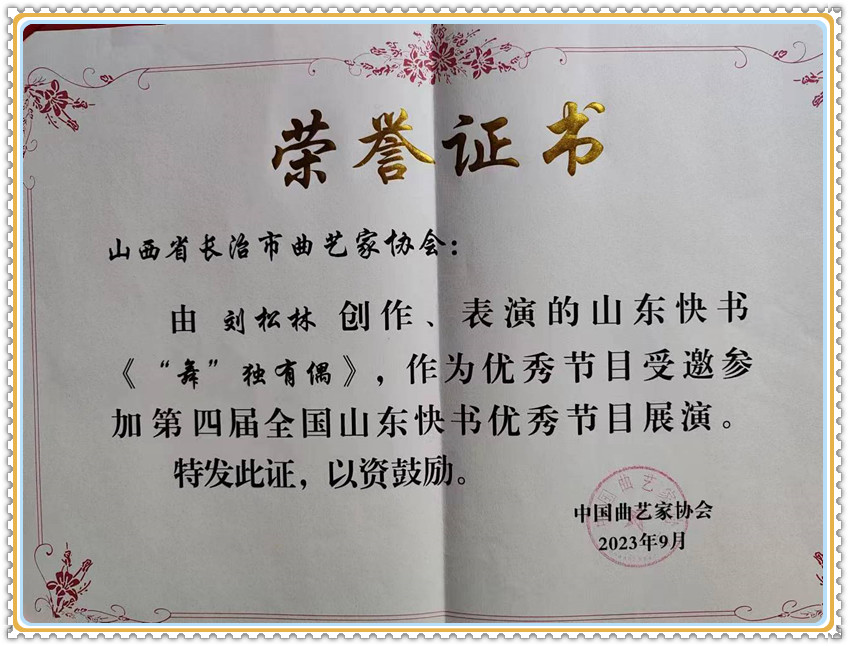 荣誉证书
山西省长治市曲艺家协会：
由 刘松林 创作、表演的山东快书
《“舞”独有偶》，作为优秀节目受邀参
加第四届全国山东快书优秀节目展演。
特发此证，以资鼓励。
中国曲艺家协会
2023年9月